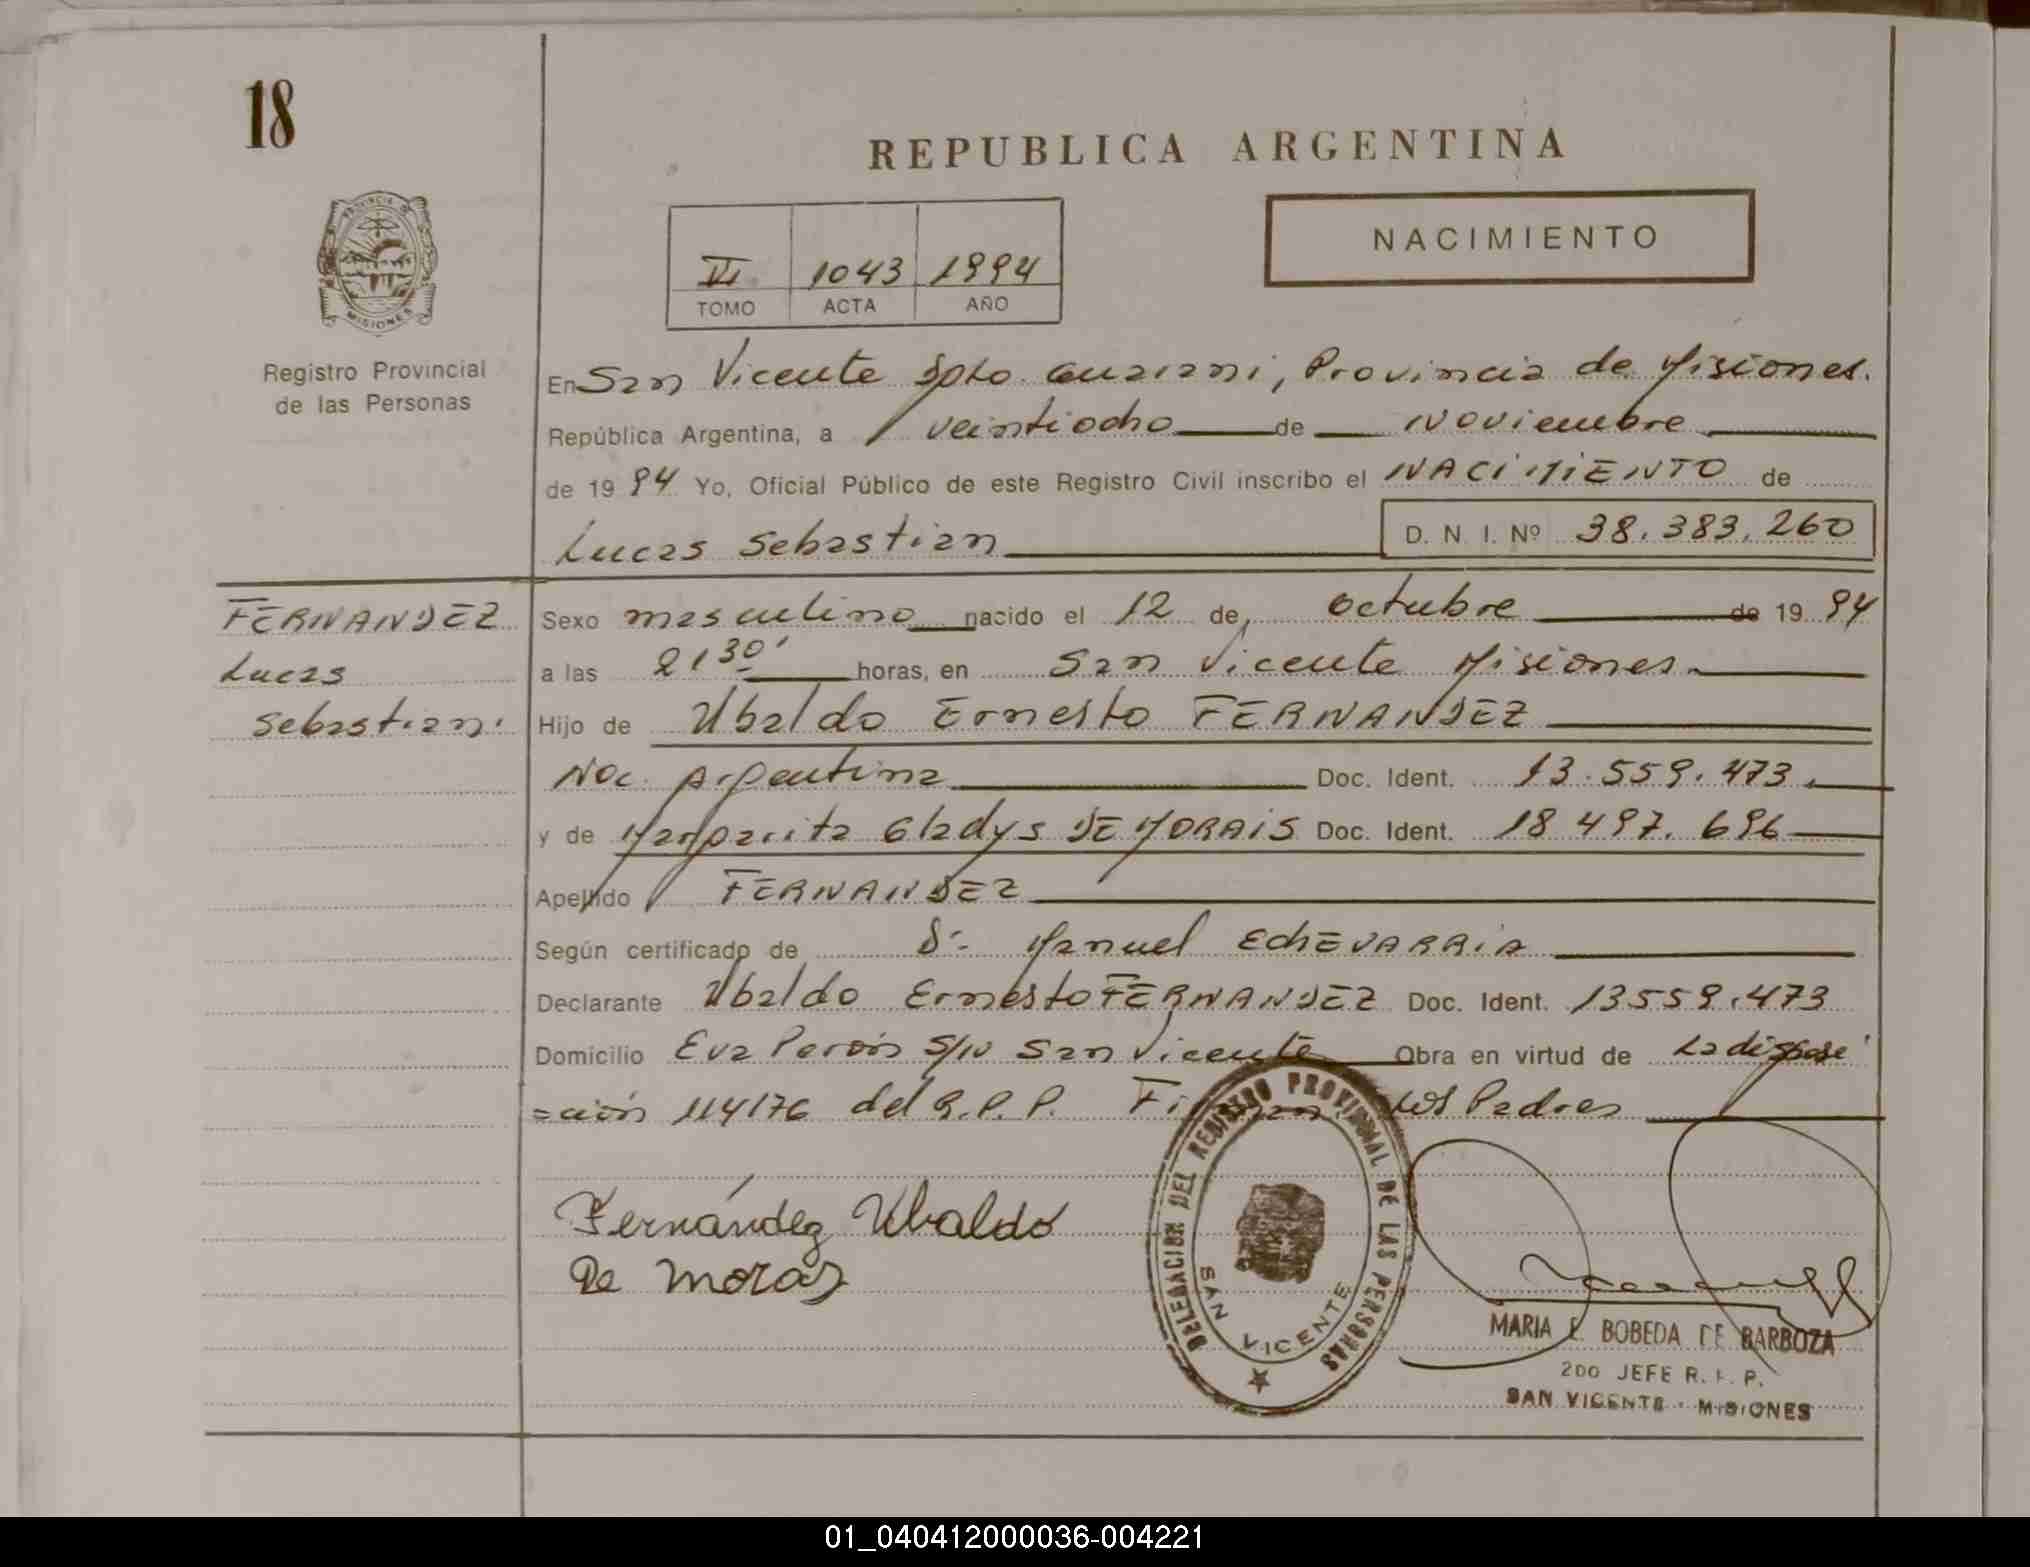 18
REPUBLICA ARGENTINA
NACIMIENTO
VI 1043 1994
TOMO ACTA AÑO
PROVINCIA DE
MISIONES
Registro Provincial
de las Personas
En San Vicente Dpto. Guarani, Provincia de Misiones.
República Argentina, a veintiocho de Noviembre
de 19 94 Yo, Oficial Público de este Registro Civil inscribo el NACIMIENTO de
Lucas Sebastian D. N. I. Nº 38.383.260
FERNANDEZ
Lucas
Sebastian.
Sexo masculino nacido el 12 de Octubre de 19 94
a las 21 30' horas, en San Vicente Misiones.
Hijo de Ubaldo Ernesto FERNANDEZ
Nac. Argentina Doc. Ident. 13.559.473.
y de Margarita Gladys DE MORAIS Doc. Ident. 18 497.696
Apellido FERNANDEZ
Según certificado de Dr. Manuel EchEVARRiA
Declarante Ubaldo Ernesto FERNANDEZ Doc. Ident. 13559.473
Domicilio Eva Perón S/N San Vicente Obra en virtud de La disposi
=ción 114/76 del R.P.P. Firman Los Padres
Fernández Ubaldo
De Moras
DELEGACION DEL REGISTRO PROVINCIAL DE LAS PERSONAS
SAN VICENTE
MARIA E. BOBEDA DE BARBOZA
2DO JEFE R. P. P.
SAN VICENTE - MISIONES
01_040412000036-004221